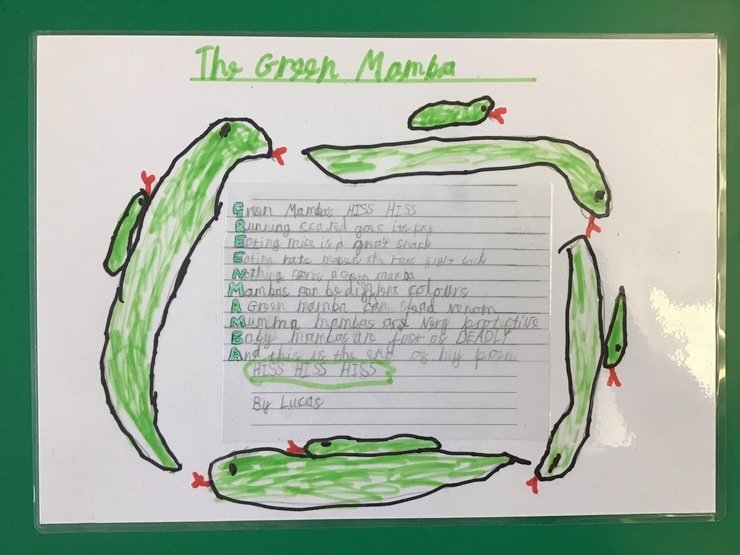 The Green Mamba
Green Mambas HISS HISS
Running scared goes its prey
Eating mice is a great snack
Eating rats makes the rats fight back
Nothing scares a Green mamba
Mambas can be diffrent colours
A Green mamba can venom
Mumma mambas are very protective
Baby mambas are just as DEADLY
And this is the end of my poem
HISS HISS HISS
By Lucas